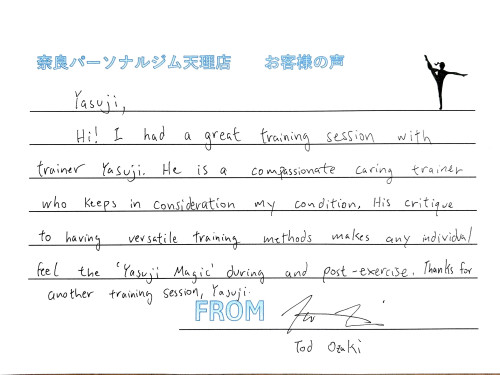 奈良パーソナルジム天理店 お客様の声
Yasuji,
Hi! I had a great training session with
trainer Yasuji. He is a compassionate caring trainer
who keeps in consideration my condition. His critique
to having versatile training methods makes any individual
feel the 'Yasuji Magic' during and post-exercise. Thanks for
another training session, Yasuji.
FROM
Tod Ozaki